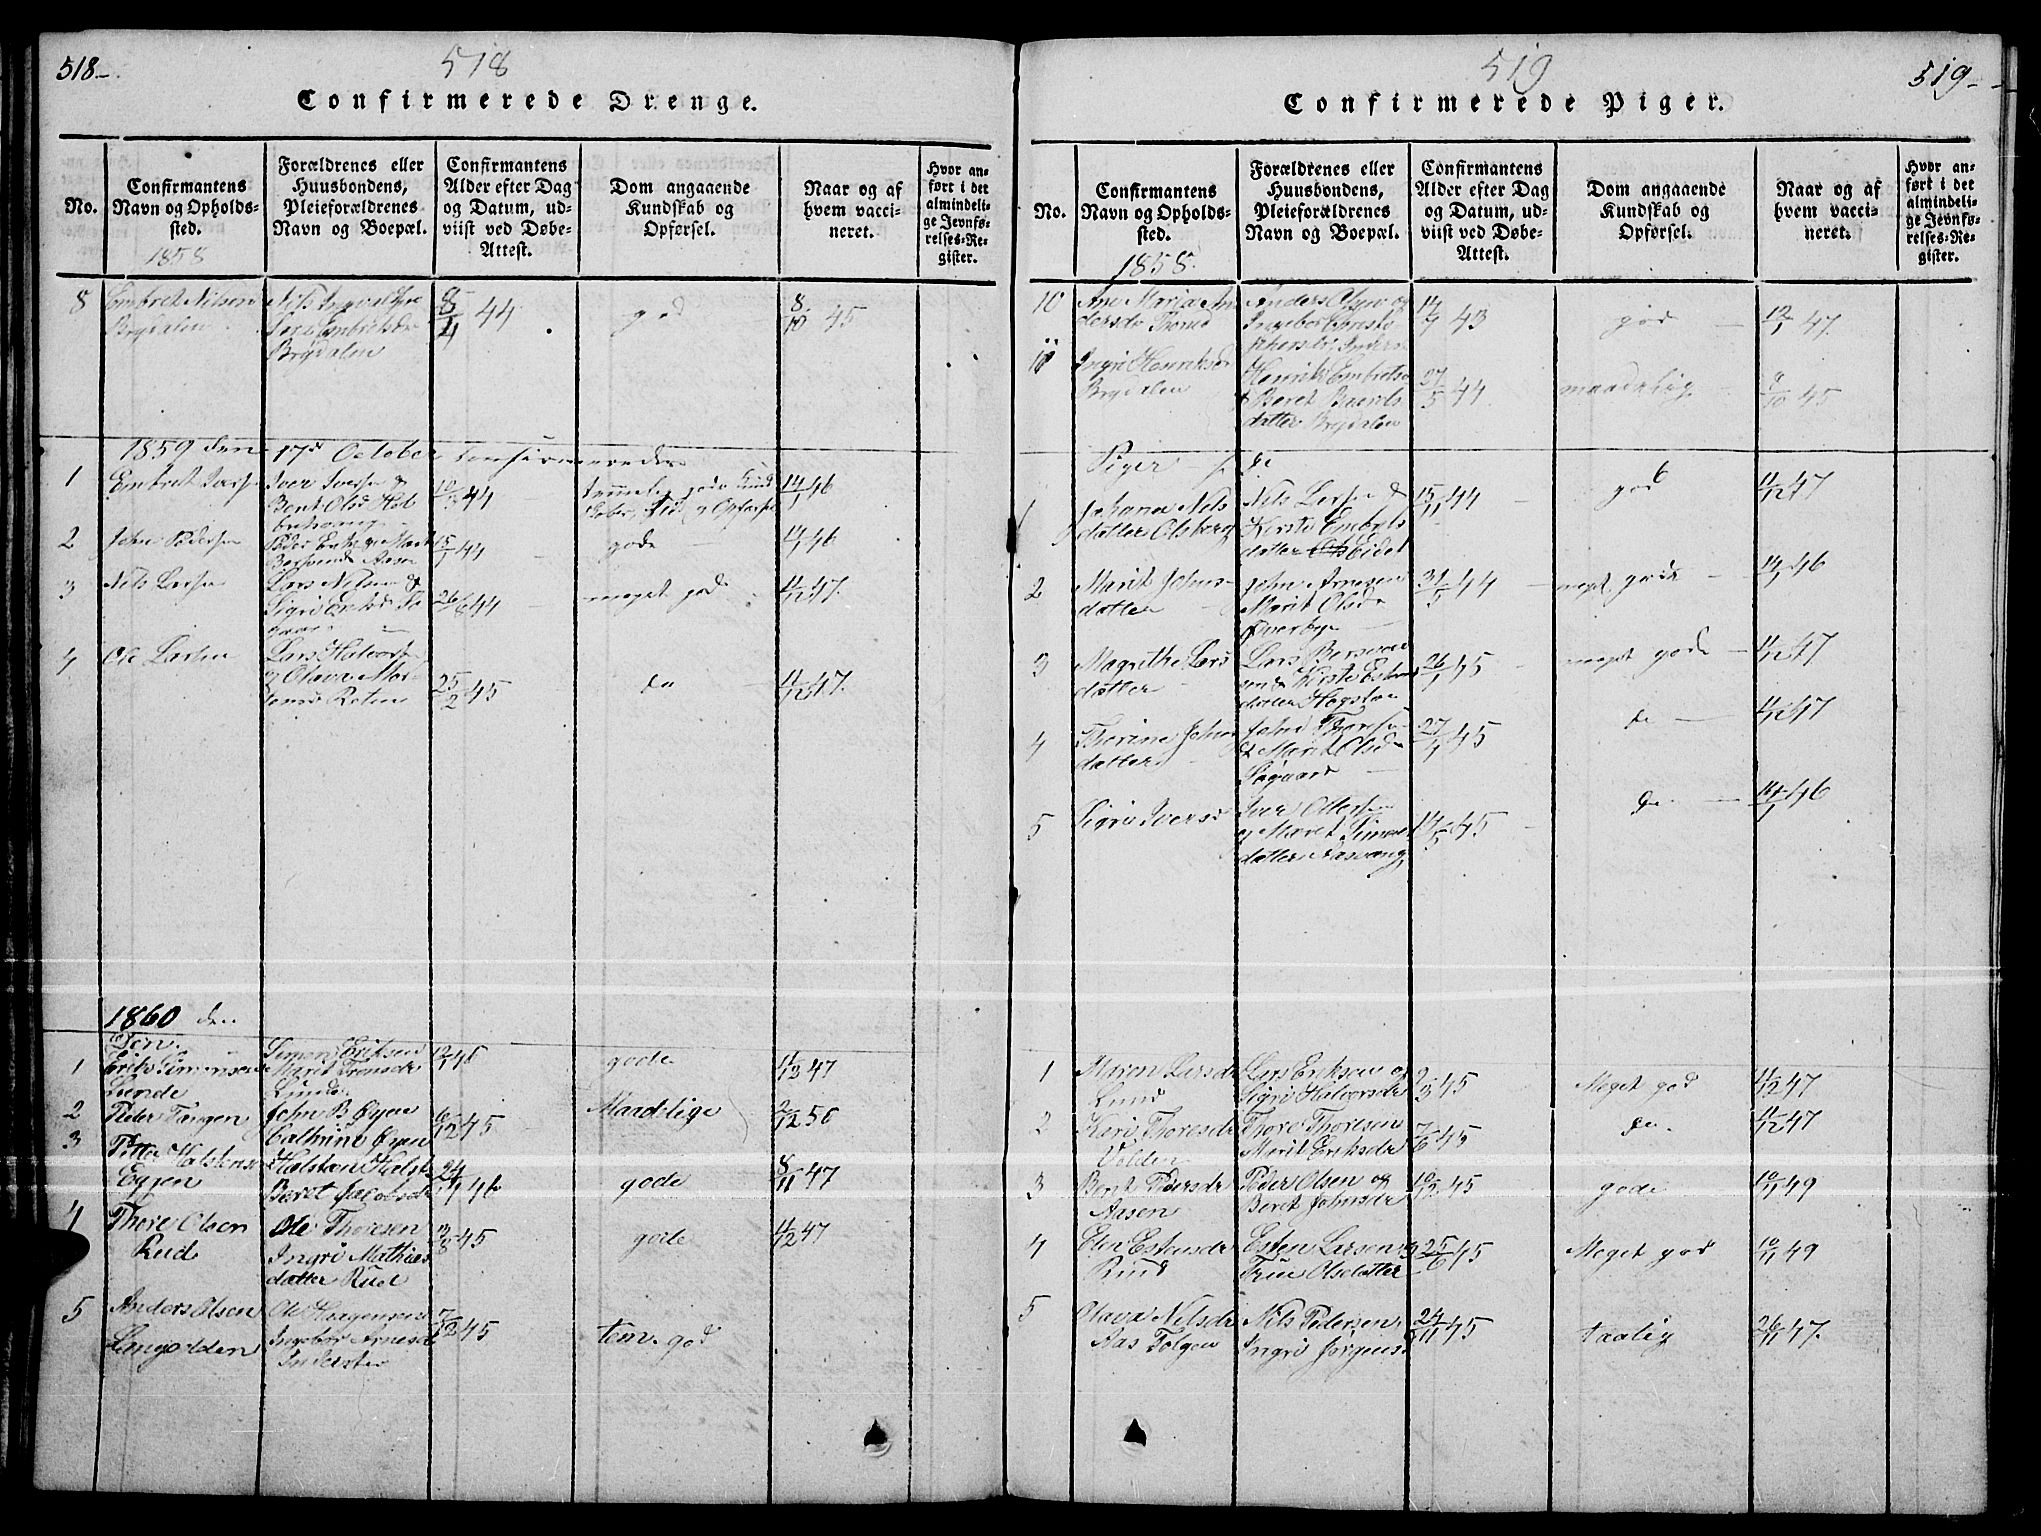 518-
518
Confirmerede Drenge.
No.
Confirmantens
Navn og Opholds-
sted.
1858
Forældrenes eller
Huusbondens,
Pleieforældrenes
Navn og Boepæl.
Confirmantens
Alder efter Dag
og Datum, ud-
viist ved Døbe-
Attest.
Dom angaaende
Kundskab og
Opførsel.
Naar og af
hvem vacci-
neret.
Hvor an-
ført i det
almindeli-
ge Jevnfø-
relses-Re-
gister.
8
Embret Nilsen
Brydalen
Nils
Embretsdr
Brydalen
8/4 44
god
8/10 45
1859 den 17de October
1
Embret
Iver Iversen &
Olsd
44
gode Kund
og Opførsel
14/1 46
2
John Pedersen
Peder
Aasen
15/1 44
gode
14/1 46
3
Nils Larsen
Lars Nilsen &
Sigri
26/8 44
meget god
11/12 47.
4
Ole Larsen
Lars Halvorsen
& Olava Mor-
25/2 45
do
11/12 47.
1860 den
1
Erik Simonsen
Lunde
Simon Eriksen
Marit Tronsdr
Lunde
12/1 46
gode
11/12 47
2
Peder Tangen
John B Øyen
Cathrine Øyen
6/12 45
Maadelige
2/12 50
3
Petter Halstensen
Eggen
Halsten Halst
Beret Jacobsdr
24/4 46
gode
8/11 47
4
Thore Olsen
Rud
Ole Thoresen
Ingri Mathias
datter Rud
3/8 45
gode
11/12 47
5
Anders Olsen
Ole Haagensen
Ingebor Arnesd
7/12 45
tem. god
519
519-
Confirmerede Piger.
No.
Confirmantens
Navn og Opholds-
sted.
1858.
Forældrenes eller
Huusbondens,
Pleieforældrenes
Navn og Boepæl.
Confirmantens
Alder efter Dag
og Datum, ud-
viist ved Døbe-
Attest.
Dom angaaende
Kundskab og
Opførsel.
Naar og af
hvem vacci-
neret.
Hvor an-
ført i det
almindeli-
ge Jevnfø-
relses-Re-
gister.
10
Ane Maria An
dersdr
Anders og
Ingebor
14/9 43
god
12/1 47.
11
Ingri Henriksd
Brydalen
Henrik Embretsen
& Beret Baards
datter Brydalen
27/5 44
maadelig
9/10 45
Piger
1
Johana Nils
datter Olsberg
Nils Larsen &
Kirsti Embrets
datter Eidet
15/11 44
god
11/12 47
2
Marit Johns-
datter
John Arnesen
Marit Olsdr
31/5 44
meget gode
14/1 46
3
Magrethe Lars
datter
Lars
Kirsti Estens
datter Hogstad
26/1 45
meget gode
11/12 47
4
Thorine Johns
datter
John Thorsen
& Marit Olsdr
Søgaard
27/4 45
do
11/12 47
5
Sigri Iversd
Iver Ottersen
og Maret Simens
datter Aasvang
14/5 45
do
14/1 46
1
Maren Larsdr
Lund
Lars Eriksen og
Sigri Halvorsdr
2/3 45
Meget god
11/12 47
2
Kari Thoresdr
Volden
Thore Thoresen
Marit Eriksdr
7/6 45
do.
11/12 47
3
Berit Pedersdr
Aasen
Peder Olsen og
Beret Johnsdr
10/12 45
gode
10/1 49
4
Elen Estensdr
Rud
Esten Larsen og
Trine Olsdatter
25/6 45
Meget god
10/1 49
5
Olava Nilsdr
Aas Tolgen
Nils Pedersen
Ingri Jørgens.
24/11 45
taalig
26/11 47.